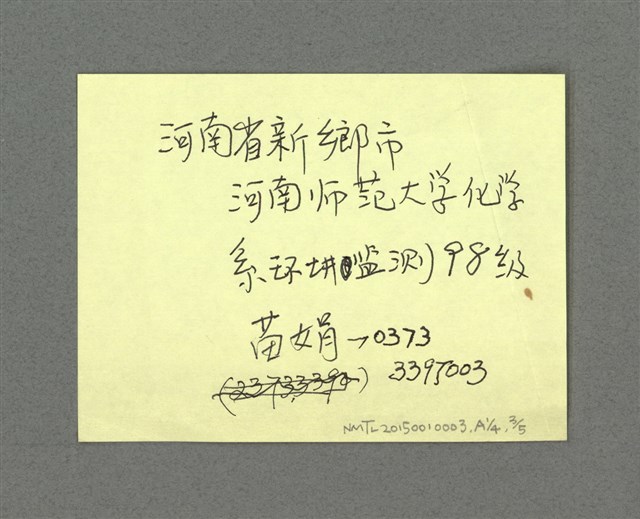 河南省新鄉市
河南师范大学化学
系环境监测98级
苗娟→0373
3395003
NMTL20150010003.A1/4.3/5